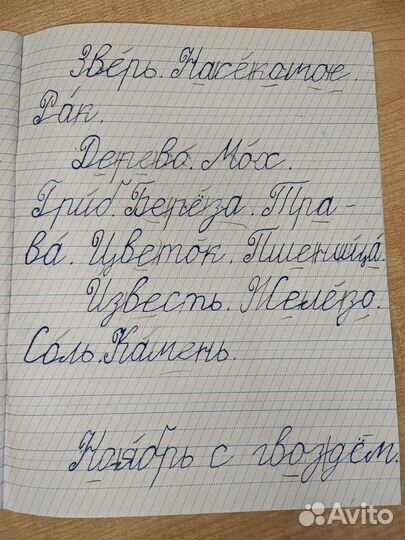 Зве́рь. Насеко́мое.
Ра́к.
Де́рево. Мо́х.
Гри́б. Берёза. Тра-
ва́. Цвето́к. Пшени́ца.
И́звесть. Желе́зо.
Со́ль. Ка́мень.
Ноя́брь с гвоздём.
Avito